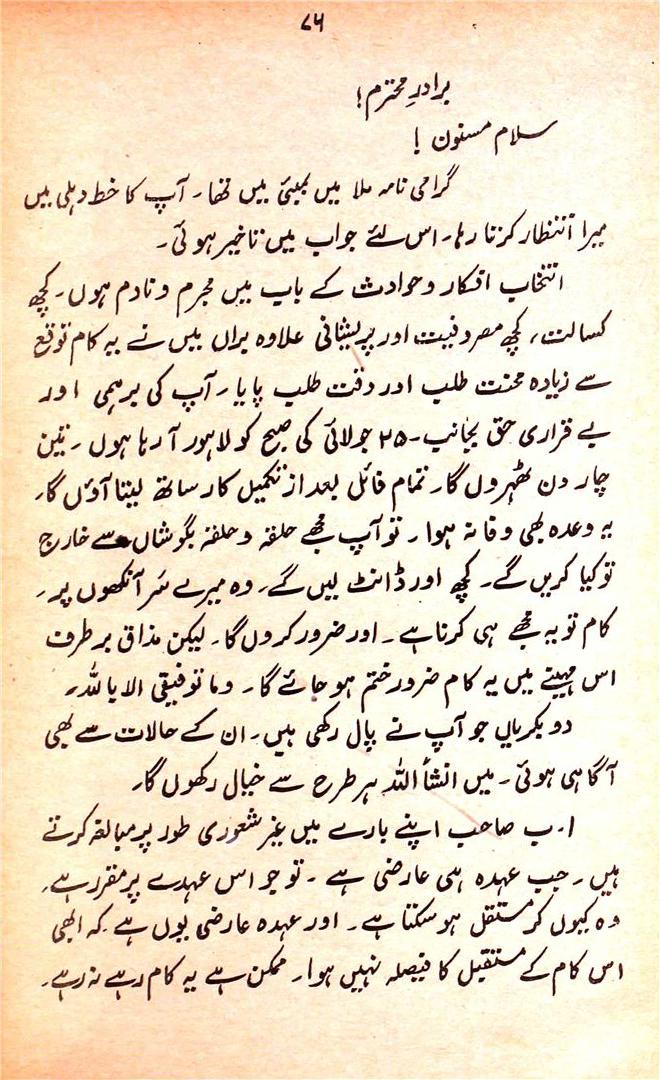 ۷۶
برادرِ محترم!
سلام مسنون!
گرامی نامہ ملا میں بمبئی میں تھا۔ آپ کا خط دہلی میں
میرا انتظار کرتا رہا۔ اس لئے جواب میں تاخیر ہوئی۔
انتخاب افکار و حوادث کے باب میں مجرم و نادم ہوں۔ کچھ
کسالت، کچھ مصروفیت اور پریشانی علاوہ براں میں نے یہ کام توقع
سے زیادہ محنت طلب اور دقت طلب پایا۔ آپ کی برہمی اور
بے قراری حق بجانب۔ ۲۵ جولائی کی صبح کو لاہور آ رہا ہوں۔ تین
چار دن ٹھہروں گا۔ تمام فائل بعد از تکمیل کار ساتھ لیتا آؤں گا۔
یہ وعدہ بھی وفا نہ ہوا۔ تو آپ مجھے حلقہ و حلقہ بگوشاں سے خارج
تو کیا کریں گے۔ کچھ اور ڈانٹ لیں گے۔ وہ میرے سَر آنکھوں پر۔
کام تو یہ مجھے ہی کرنا ہے۔ اور ضرور کروں گا۔ لیکن مذاق برطرف
اس مہینے میں یہ کام ضرور ختم ہو جائے گا۔ وما توفیقی الا باللہ۔
دو بکریاں جو آپ نے پال رکھی ہیں۔ ان کے حالات سے بھی
آگاہی ہوئی۔ میں انشأ اللہ ہر طرح سے خیال رکھوں گا۔
ا۔ ب صاحب اپنے بارے میں غیر شعوری طور پر مبالغہ کرتے
ہیں۔ جب عہدہ ہی عارضی ہے۔ تو جو اس عہدے پر مقرر ہے۔
وہ کیوں کر مستقل ہو سکتا ہے۔ اور عہدہ عارضی یوں ہے کہ ابھی
اس کام کے مستقبل کا فیصلہ نہیں ہوا۔ ممکن ہے یہ کام رہے نہ رہے۔